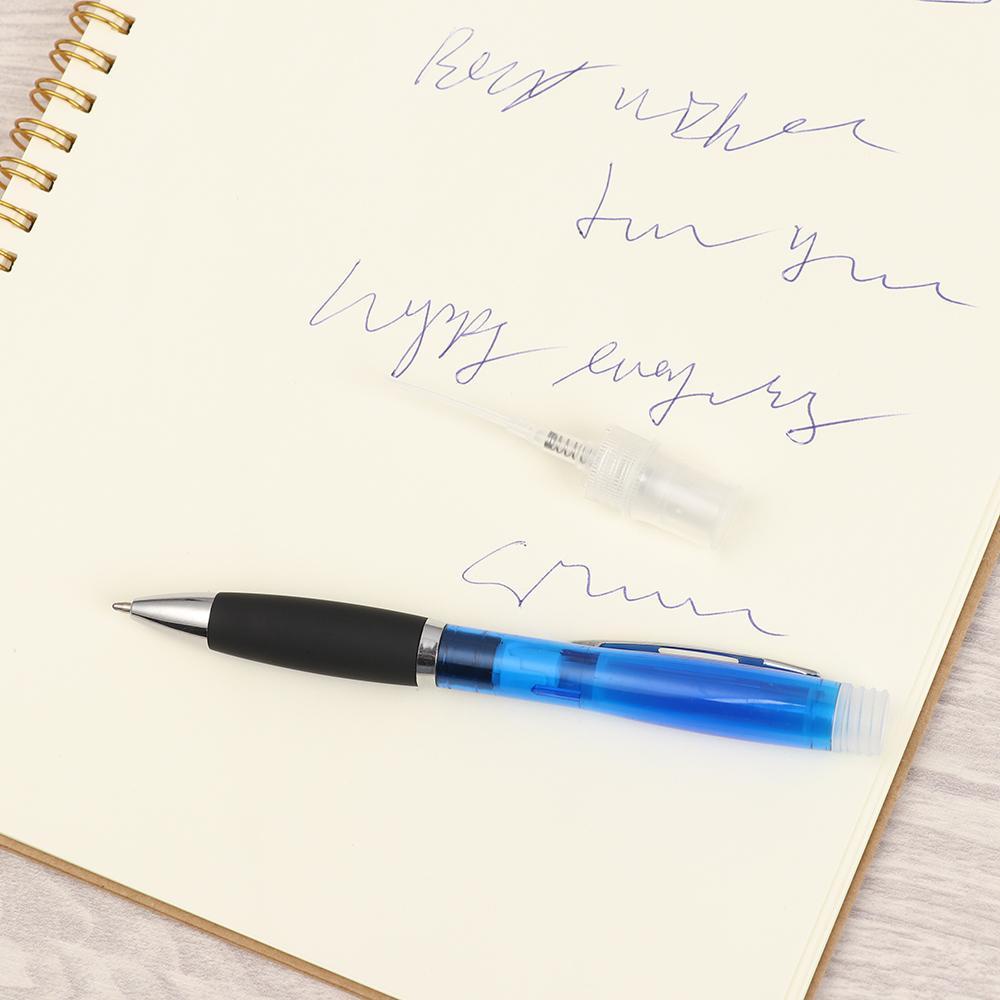 Best wishes
for you
happy everyday